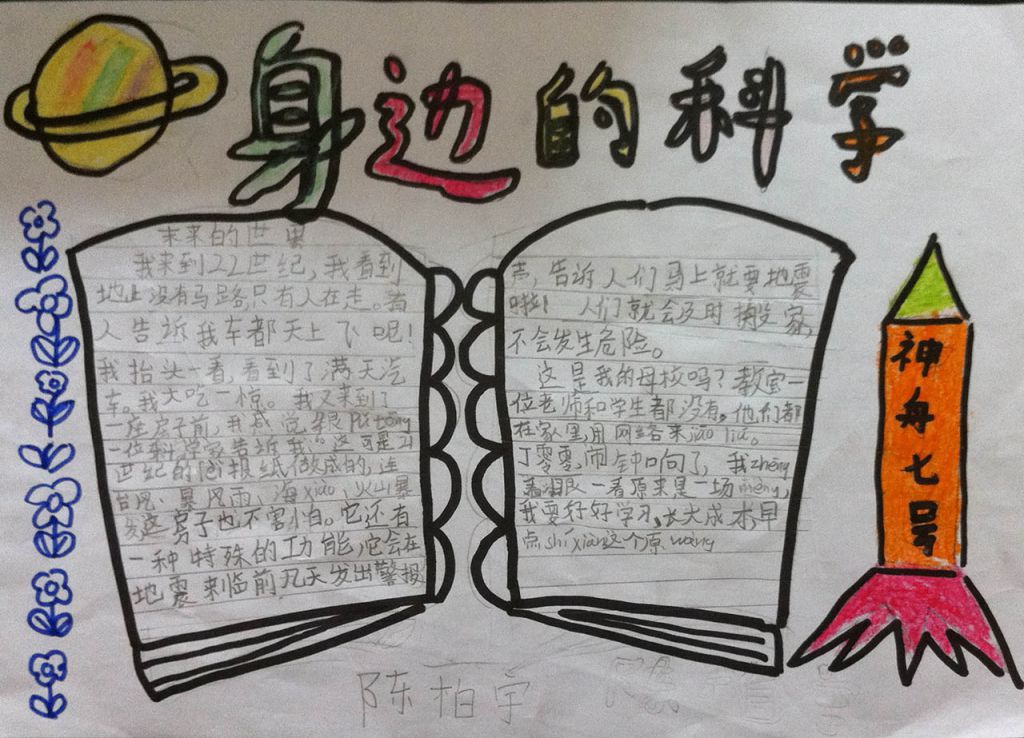 身边的科学
未来的世界
我来到22世纪,我看到
地上没有马路,只有人在走。有
人告诉我车都天上飞呢!
我抬头一看,看到了满天汽
车。我大吃一惊。我又来到了
一座房子前,我感觉很pǔ tōng
一位科学家告诉我:"这可是22
世纪的
纸做成的,连
台风、暴风雨、海xiào、火山暴
发这房子也不害怕。它还有
一种特殊的功能,它会在
地震来临前几天发出警报
声,告诉人们马上就要地震
啦! 人们就会及时搬家,
不会发生危险。
这是我的母校吗?教室一
位老师和学生都没有。他们都
在家里,用网络来jiāo liú。
丁零零,闹钟响了,我zhēng
着眼一看原来是一场mèng,
我要好好学习,长大成本早
点shí xiàn这个原wàng
神舟七号
陈柏宇